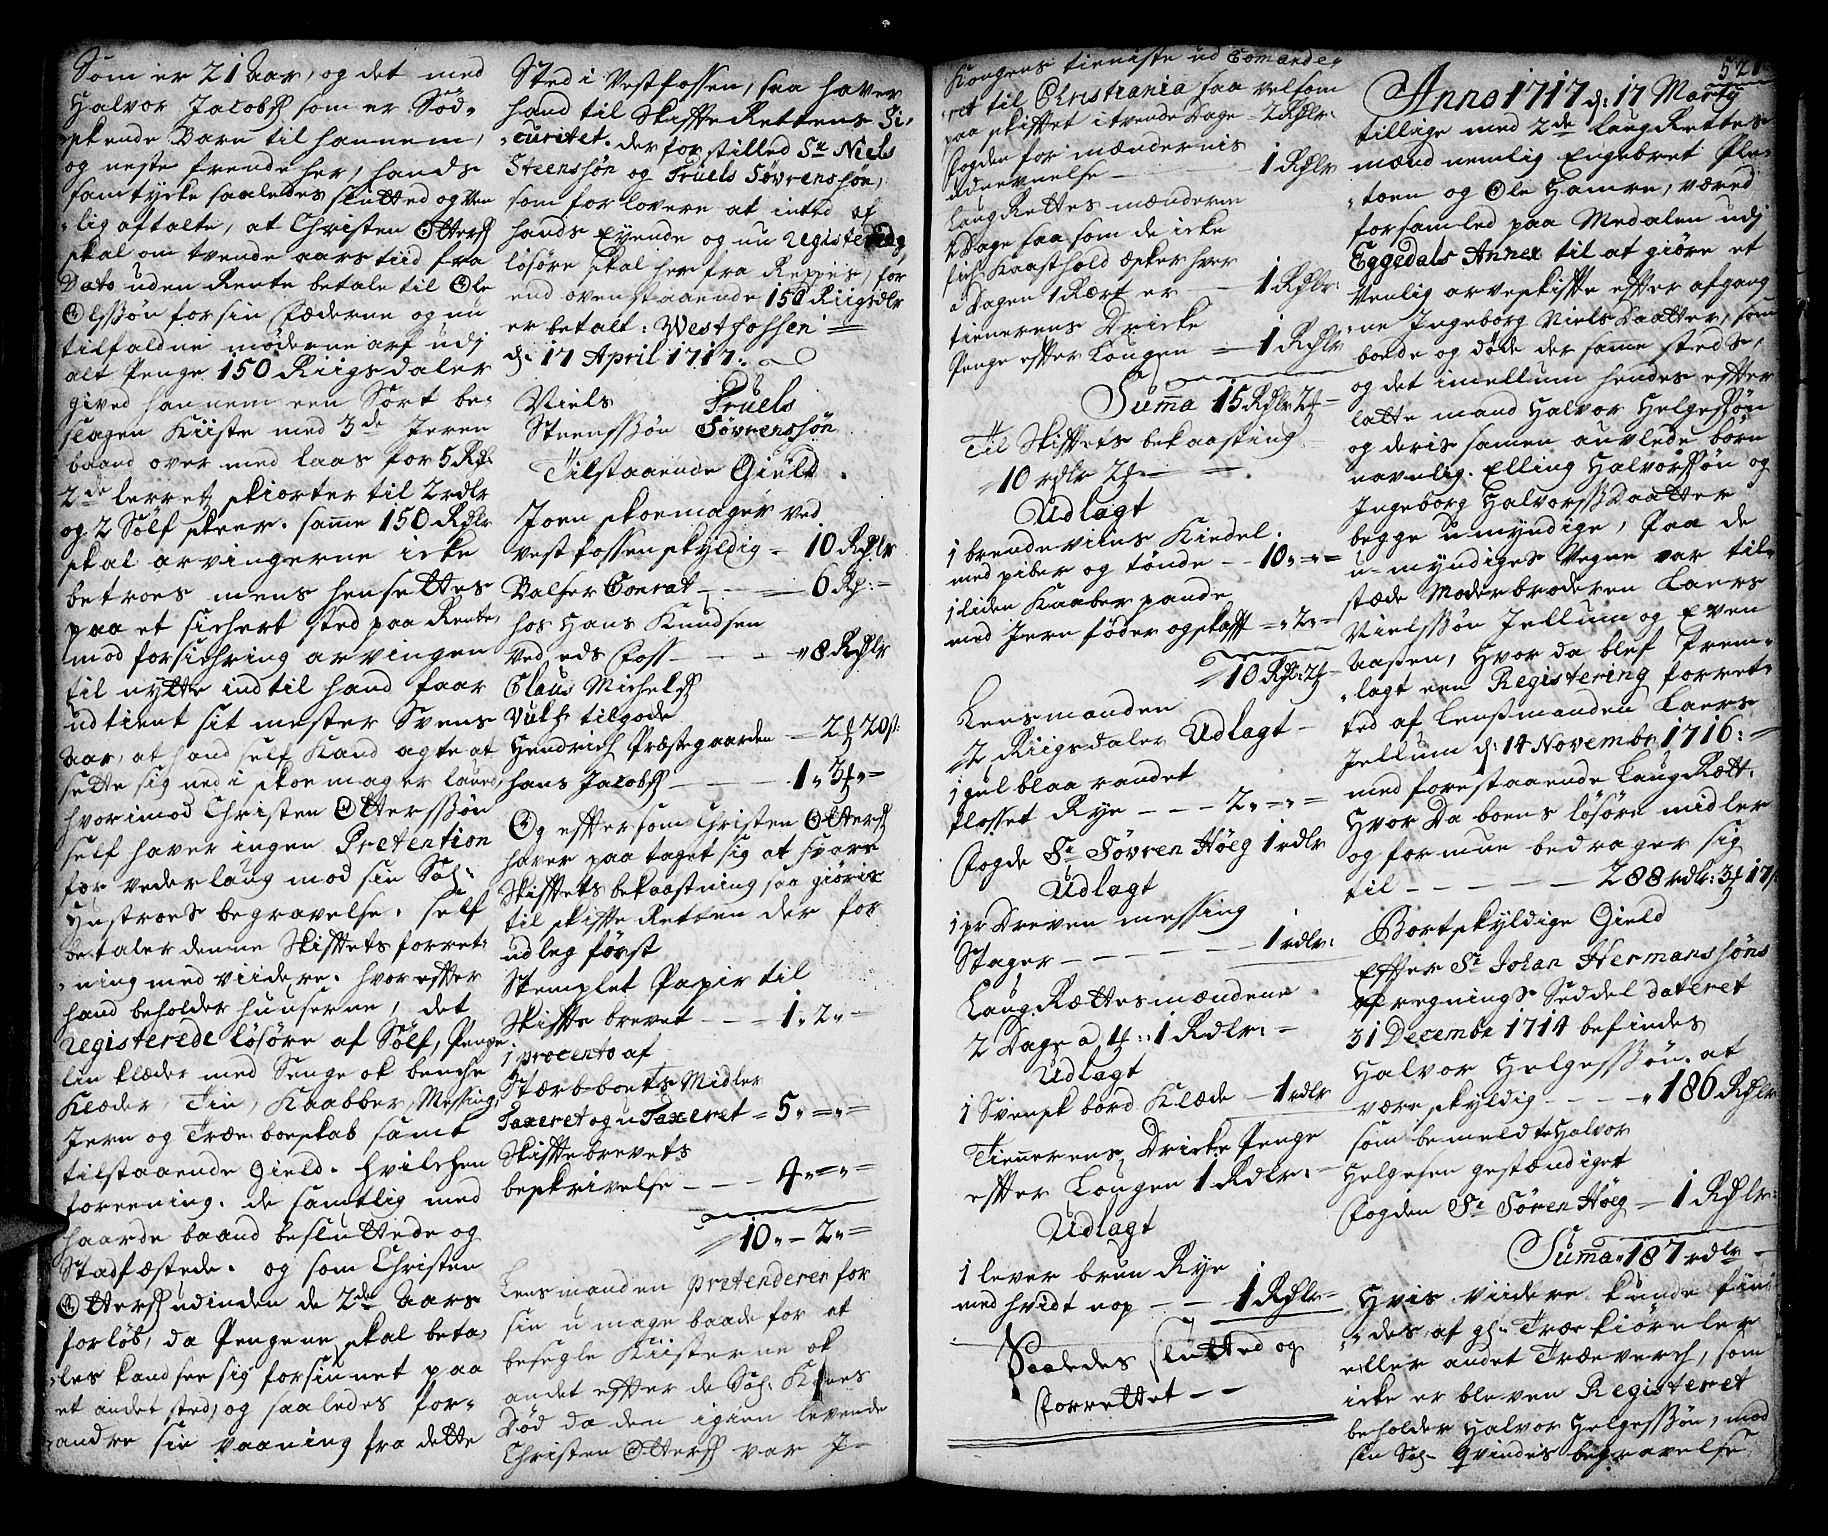 Som er 21 aar, og det med
Halvor Jacobs. som er Sød-
skende Barn til hannem,
og neste frende her, hands
samtycke saaledes slutted og ven
lig aftalte, at Christen Otters.
skal om tvende aars tiid fra
Dato uden Rente betale til Ole
Olssøn for sin Fæderne og nu
tilfaldne møderne arf udj
alt Penge 150 Riigsdaler
gived hannem een Sort be-
slagen Kiiste med 3de Jeren
baand over med laas for 5 Rd.
2de lerretz skiorter til 2 rdlr
og 2 Sølf skeer. samme 150 Rdlr
skal arvingerne icke
betroes mens hensettes
paa et sichert sted paa Rente,
mod forsichring arvingen
til nytte indtil hand faar
udtient sit mester Svens
aar, at hand self kand agte at
sette sig ned i skoemager lauged,
hvorimod Christen Otterssøn
self haver ingen Pretention
for vederlaug mod sin Sal:
Hustroes begravelse. self
betaler denne Skiftets forret-
ning med viidere. hvorefter
hand beholder huuserne, det
Registerede løsøre af Sølf, Penge
lin klæder med Senge ok benche
Klæder, Tin, Kaabber, Messing,
Jern og Træ boeskab samt
tilstaaende Gield. hvilchen
foreening. de samtlig med
haarde baand besluttede og
Stadfæstede. og som Christen
Otters. udinden de 2de aars
forløb, da Pengene skal beta-
les kand see sig forsiunet paa
et andet sted, og saaledes for-
andre sin vaaning fra dette
Sted i Vestfossen, saa haver
hand til Skifte Rettens Si-
curitet. der for stilled Sr Niels
Steenssøn og Truels Søvrenssøn,
som forlovere at inted af
hands Eyende og nu Registering,
løsøre skal her fra Reppes, for
end ovenstaaende 150 Riigsdlr
er betalt: Westfossen
d: 17 April 1717.
Niels Truels
Steenssøn Søvrenssøn
Tilstaaende Gield.
Joen skoemager ved
vestfossen skyldig = 10 Rdlr
Balser Conrat - - 6 Rd:=
hos Hans Knudsen
ved eds Foss - - - 8 Rdlr
Claus Michels.
Vulf tilgode
Hendrich Præstegaarden - 2 20 s.
hans Jacobs. - - 1 " 3 " =
Og eftersom Christen Otters.
haver paa taget sig at svare
Skiftets bekaastning saa giøris
til skifte Retten der for
udleg først
Stemplet Papir til
Skifte brevet - - = 1 " 2 " =
1 procento af
Stærbboets Midler
Taxeret og u Taxeret = 5 " = " =
Skiftebrevets
beskrivelse - - - 4 " = " =
10 " - 2 " =
Lensmanden pretenderer for
sin umage baade for at
besegle Kiisterne ok
andet efter de Sal: Kones
Død da den igien levende
Christen Otters. var J
Kongens tieniste ud Comande-
ret til Christiania saa velsom
paa skiftet i tvende Dage - 2 Rdlr:
Fogden for mændernis
udnevnelse - - 1 Rdlr
laug Rettes mænderne
2 Dage saa som de icke
fich Kaasthold æsker hver
a Dagen 1 Rort er - 1 Rdlr:
tienerens Dricke
Penge efter Lougen = 1 Rdlr
Suma 15 Rdlr 2
Til Skiftets bekaasting
10 rdlr 2
Udlagt
1 brendeviins Kiedel.
med piber og tønde - 10 " = " =
1 liden Kaaber pande
med Jern føder og skaft = " 2 " =
10 Rd: 2
Lensmanden
2 Riigsdaler Udlagt -
1 gul blaa randet
flosset Rye - - - 2 " = " =
Fogde Sr Søvren Høeg 1 rdlr
Udlagt
1 pr Dreven messing
Stager - - - - 1 rdlr:
Laug Rættesmændene
2 Dage a : 1 Rdlr: -
Udlagt
1 Svensk bord Klæde - 1 rdlr
Tienerens, Dricke Penge
efter Lougen 1 Rdlr: -
Udlagt
1 lever brun Rye
med hvidt nop - - 1 Rdlr =
Saaledes slutted og
Forrettet - -
521
Anno 1717 d: 17 Marty
tillige med 2de laug Rettes
mænd nemlig Engebret Pla-
toen og Ole Hamre, væred
forsamled paa Medalen udj
Eggedals Annex til at giøre et
venlig arveskifte efter afgang
ne Ingeborg Niels Daatter, som
boede og døde der samme steds,
og det imellum hendes efter
latte mand Halvor Helgessøn
og deris samen auvlede børn
navnlig. Elling Halvorssøn og
Ingeborg Halvorss Daatter
begge umyndige, Paa de
u-myndiges Vegne var til
stæde Moderbroderen Laers
Nielssøn Jellum og Even
Aasen, Hvor da blef frem-
lagt een Registering forret-
ted af Lensmanden Laers
Jellum d: 14 Novembr 1716: -
med forestaaende Laug Rætt.
Hvor Da boens løsøre midler
og formue bedrager sig
til - - - - - 288 rdlr: 3 17 s
Bortskyldige Gield
Efter Sr Johan Hermanssøns
afregnings Seddel dateret
31 Decembr 1714 befindes
Halvor Helgessøn. at
være skyldig - - - 186 Rdlr
som bemeldte Halvor
Helgesen gestændiget
Fogden Sr Søren Høeg - 1 Rdlr:
Suma 187 rdlr -
Hvis viidere kunde fin-
des, af gl: Træe kiørreler
eller andet Træeverch, som
icke er bleven Registeret
beholder Halvor Helgessøn, mod
sin Sal- Qvindes begravelse